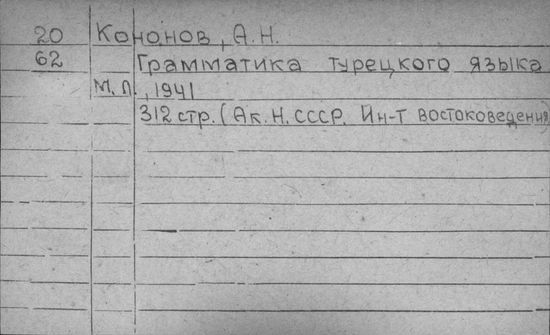 20 Кононов, А.Н.
62 Грамматика турецкого языка
М.Л., 1941
312 стр. (Ак. Н. СССР. Ин-т востоковедения)